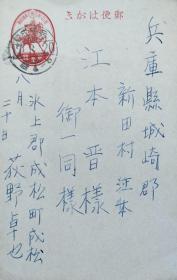 郵便はがき
兵庫縣城崎郡
新田村江本
江本晋様
御一同様
氷上郡成松町成松
荻野卓也
八月二十日